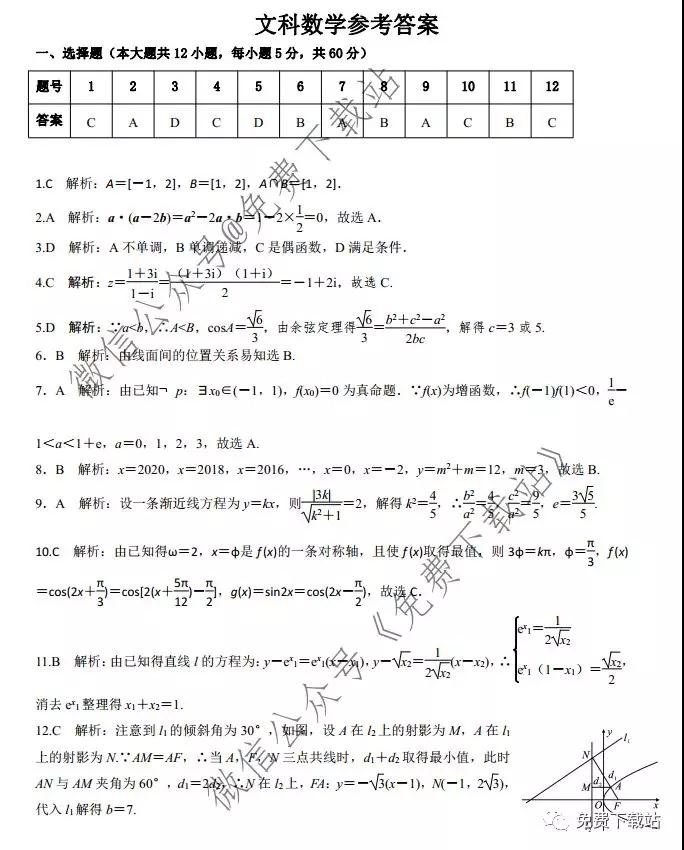 文科数学参考答案
一、选择题（本大题共 12 小题，每小题 5 分，共 60 分）
题号 1 2 3 4 5 6 7 8 9 10 11 12
答案 C A D C D B A B A C B C
1.C 解析：A＝[－1，2]，B＝[1，2]，A∩B＝[1，2]．
2.A 解析：a·(a－2b)＝a²－2a·b＝1－2×1/2＝0，故选 A．
3.D 解析：A 不单调，B 单调递减，C 是偶函数，D 满足条件．
4.C 解析：z＝(1＋3i)/(1－i)＝(1＋3i)(1＋i)/2＝－1＋2i，故选 C.
5.D 解析：∵a<b，∴A<B，cosA＝√6/3，由余弦定理得√6/3＝(b²＋c²－a²)/2bc，解得 c＝3 或 5.
6．B 解析：由线面间的位置关系易知选 B.
7．A 解析：由已知¬ p：∃x₀∈(－1，1)，f(x₀)＝0 为真命题．∵f(x)为增函数，∴f(－1)f(1)＜0，1/e－
1＜a＜1＋e，a＝0，1，2，3，故选 A.
8．B 解析：x＝2020，x＝2018，x＝2016，…，x＝0，x＝－2，y＝m²＋m＝12，m＝3，故选 B.
9．A 解析：设一条渐近线方程为 y＝kx，则|3k|/√(k²＋1)＝2，解得 k²＝4/5，∴b²/a²＝4/5，c²/a²＝9/5，e＝3√5/5.
10.C 解析：由已知得ω＝2，x＝φ是 f(x)的一条对称轴，且使 f(x)取得最值，则 3φ＝kπ，φ＝π/3，f(x)
＝cos(2x＋π/3)＝cos[2(x＋5π/12)－π/2]，g(x)＝sin2x＝cos(2x－π/2)，故选 C.
11.B 解析：由已知得直线 l 的方程为：y－eˣ₁＝eˣ₁(x－x₁)，y－√x₂＝1/(2√x₂)(x－x₂)，∴{eˣ₁＝1/(2√x₂) eˣ₁（1－x₁）＝√x₂/2，
消去 eˣ₁整理得 x₁＋x₂＝1.
12.C 解析：注意到 l₁的倾斜角为 30°，如图，设 A 在 l₂上的射影为 M，A 在 l₁
上的射影为 N.∵AM＝AF，∴当 A，F，N 三点共线时，d₁＋d₂取得最小值，此时
AN 与 AM 夹角为 60°，d₁＝2d₂，∴N 在 l₂上，FA：y＝－√3(x－1)，N(－1，2√3)，
代入 l₁解得 b＝7.
y l₁
N
d₁
M d₂ A
O F x
微信公众号@免费下载站
微信公众号《免费下载站》
免费下载站